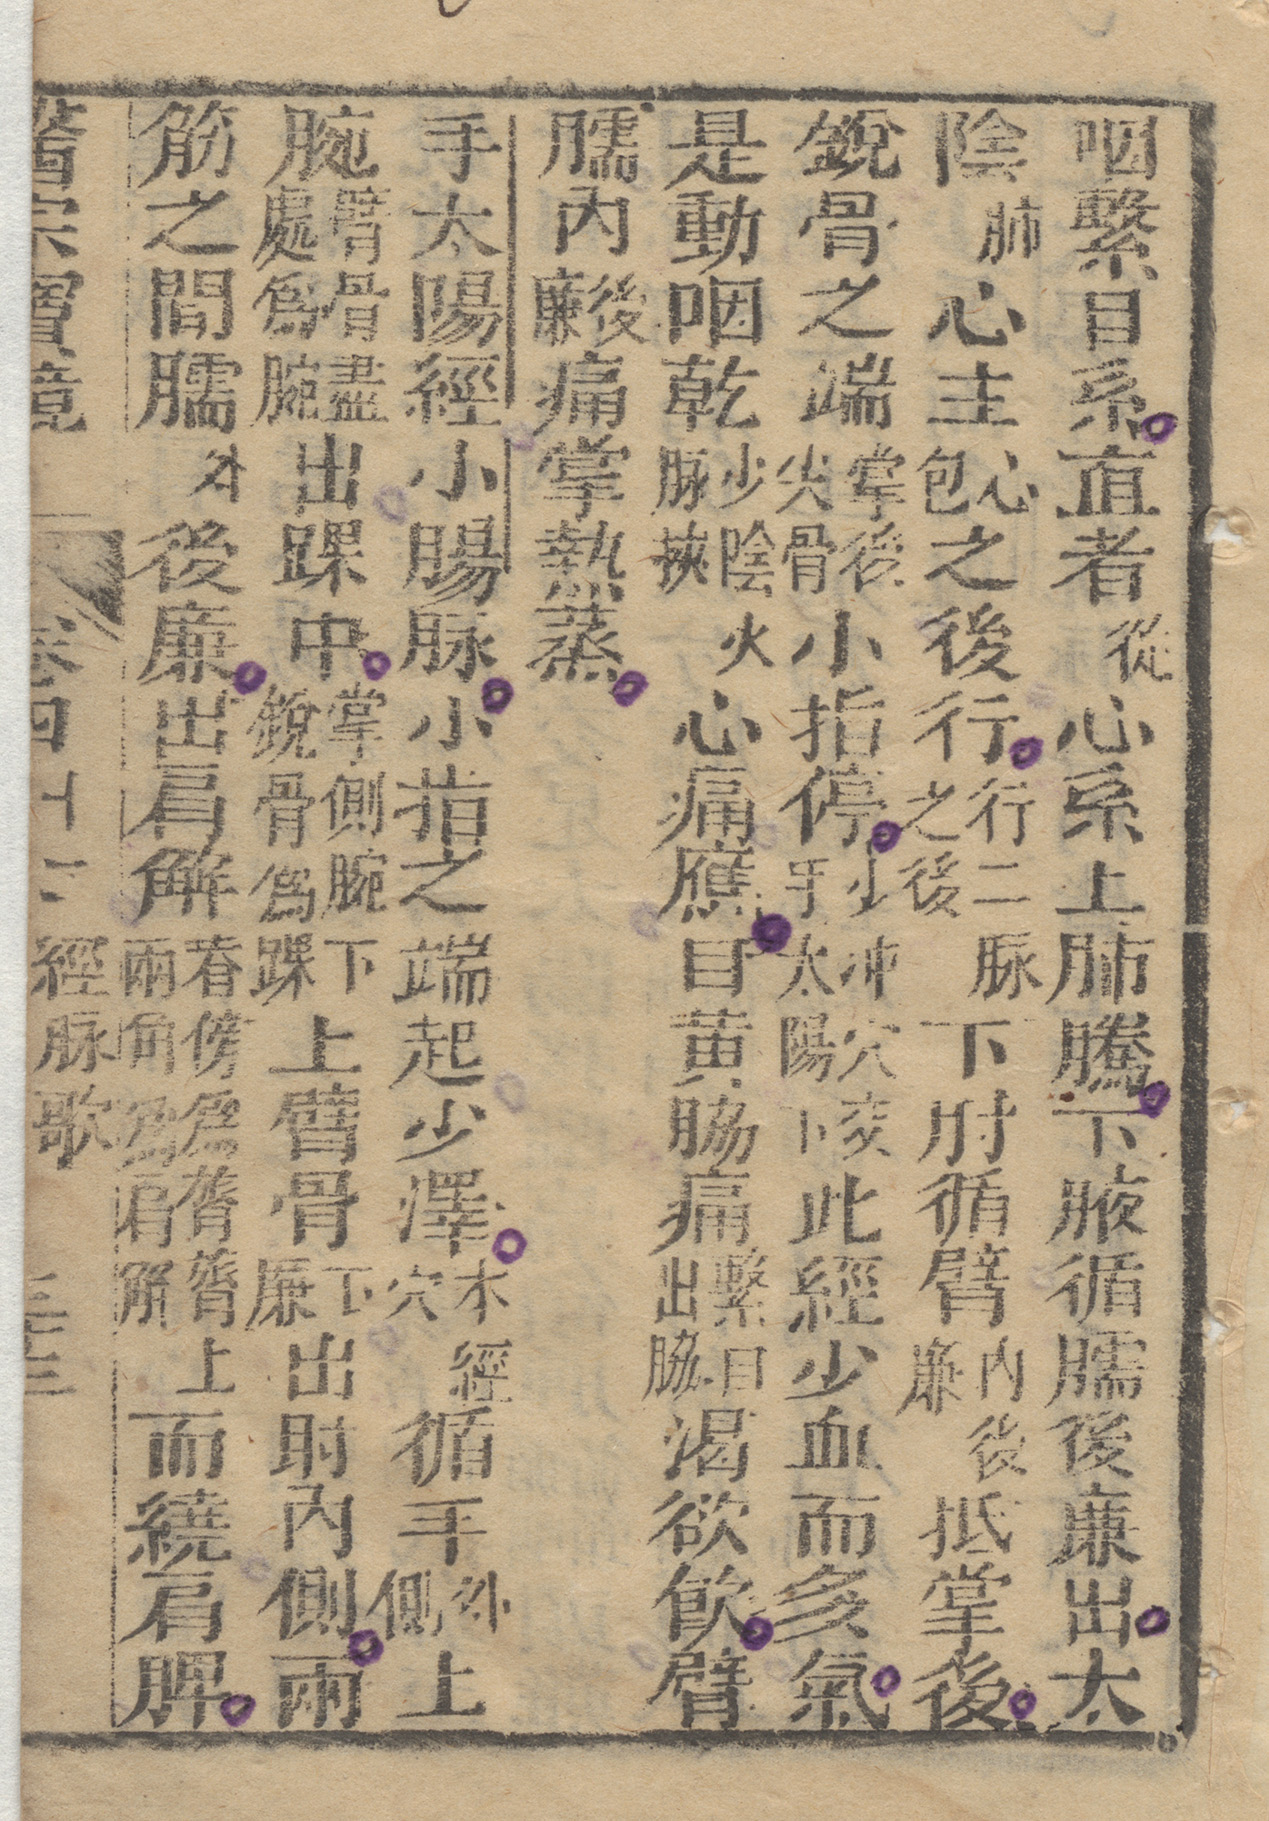 咽繫目系直者從心系上肺騰下腋循臑後廉出太
陰肺心主心包之後行行二脉之後下肘循臂內後廉抵掌後
銳骨之端掌後尖骨小指停少冲穴交手太陽下此經少血而多氣
是動咽乾少陰火脉挾心痛應目黄脇痛繫目出脇渴欲飲臂
臑內後廉痛掌熱蒸
手太陽經小腸脉小指之端起少澤本經穴循手外側上
腕臂骨盡處爲腕出踝中掌側腕下銳骨爲踝上臂骨下廉出肘內側兩
筋之間臑外後廉出肩解脊傍爲膂膂上兩角爲肩解而繞肩脾
醫宗寶鏡 卷四 十二經脉歌 三十三